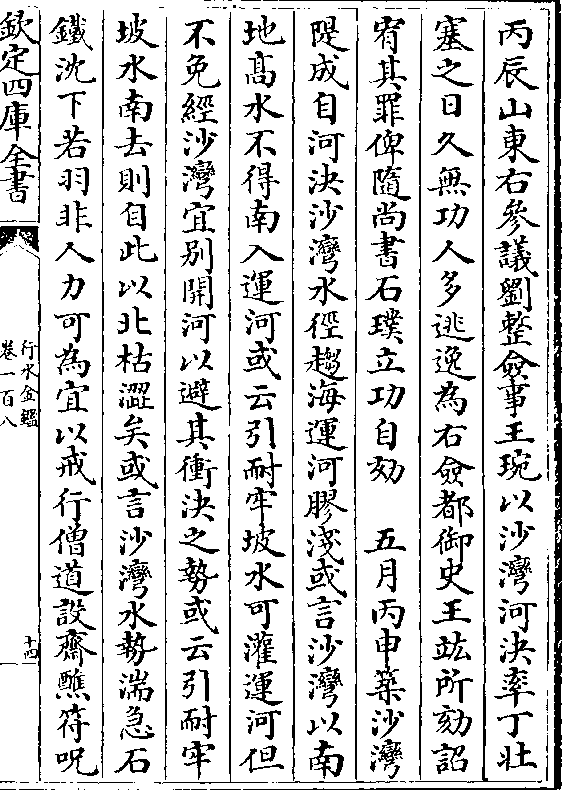 丙辰山東右參議劉整僉事王琬以沙灣河決率丁壯
塞之日久無功人多逃逸為右僉都御史王竑所劾詔
宥其罪俾隨尚書石璞立功自効　五月丙申築沙灣
隄成自河決沙灣水徑趨海運河膠淺或言沙灣以南
地髙水不得南入運河或云引耐牢坡水可灌運河但
不免經沙灣宜别開河以避其衝決之勢或云引耐牢
坡水南去則自此以北枯澀矣或言沙灣水勢湍急石
鐵沈下若羽非人力可為宜以戒行僧道設齋醮符呪
欽定四庫全書
行水金鑑
卷一百八
十四